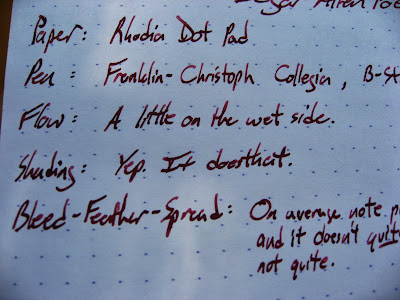 Edgar Allen Poe
Paper: Rhodia Dot Pad
Pen: Franklin-Christoph Collegia, B-St
Flow: A little on the wet side.
Shading: Yep. It
Bleed-Feather-Spread: On average note p
and it doesn't quit
not quite.